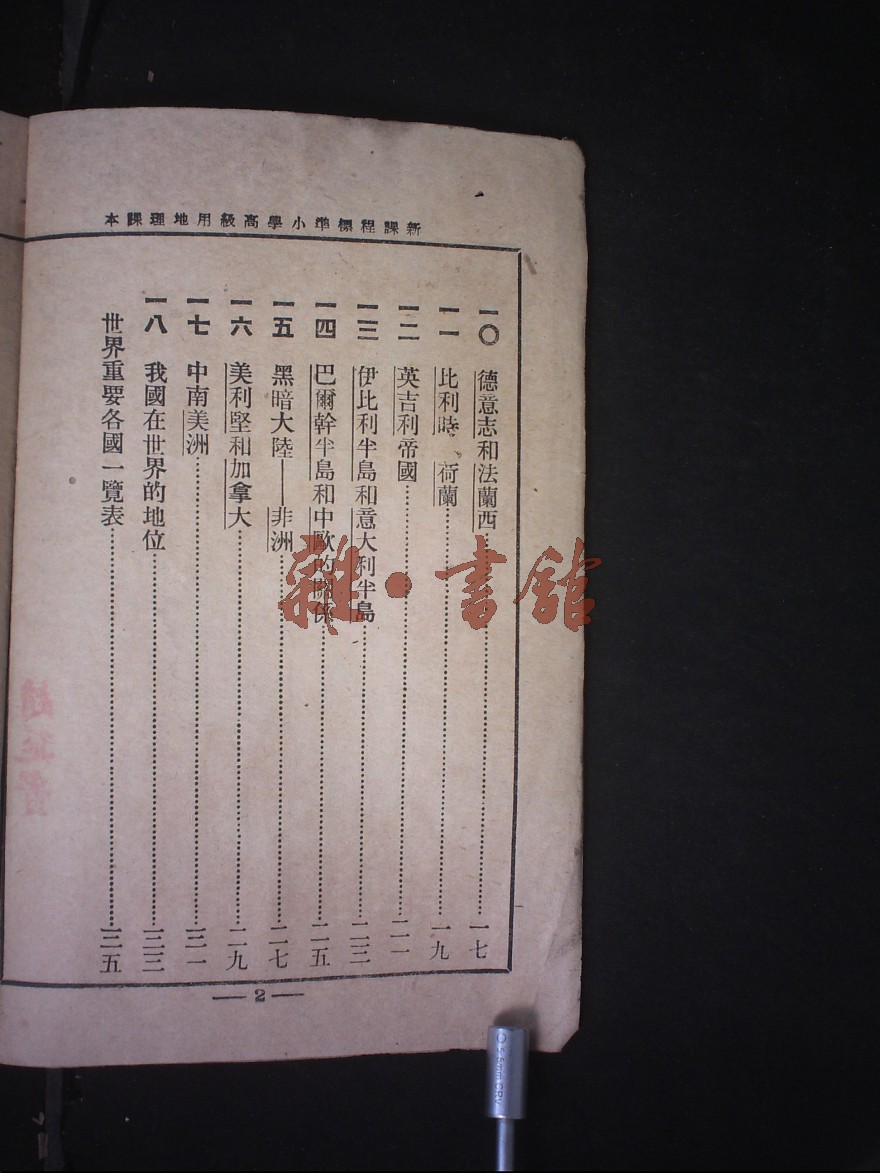 新課程標準小學高級用地理課本
一〇 德意志和法蘭西……一七
一一 比利時、荷蘭……一九
一二 英吉利帝國……二一
一三 伊比利半島和意大利半島……二三
一四 巴爾幹半島和中歐的關係……二五
一五 黑暗大陸——非洲……二七
一六 美利堅和加拿大……二九
一七 中南美洲……三一
一八 我國在世界的地位……三三
世界重要各國一覽表……三五
— 2 —
雜·書館